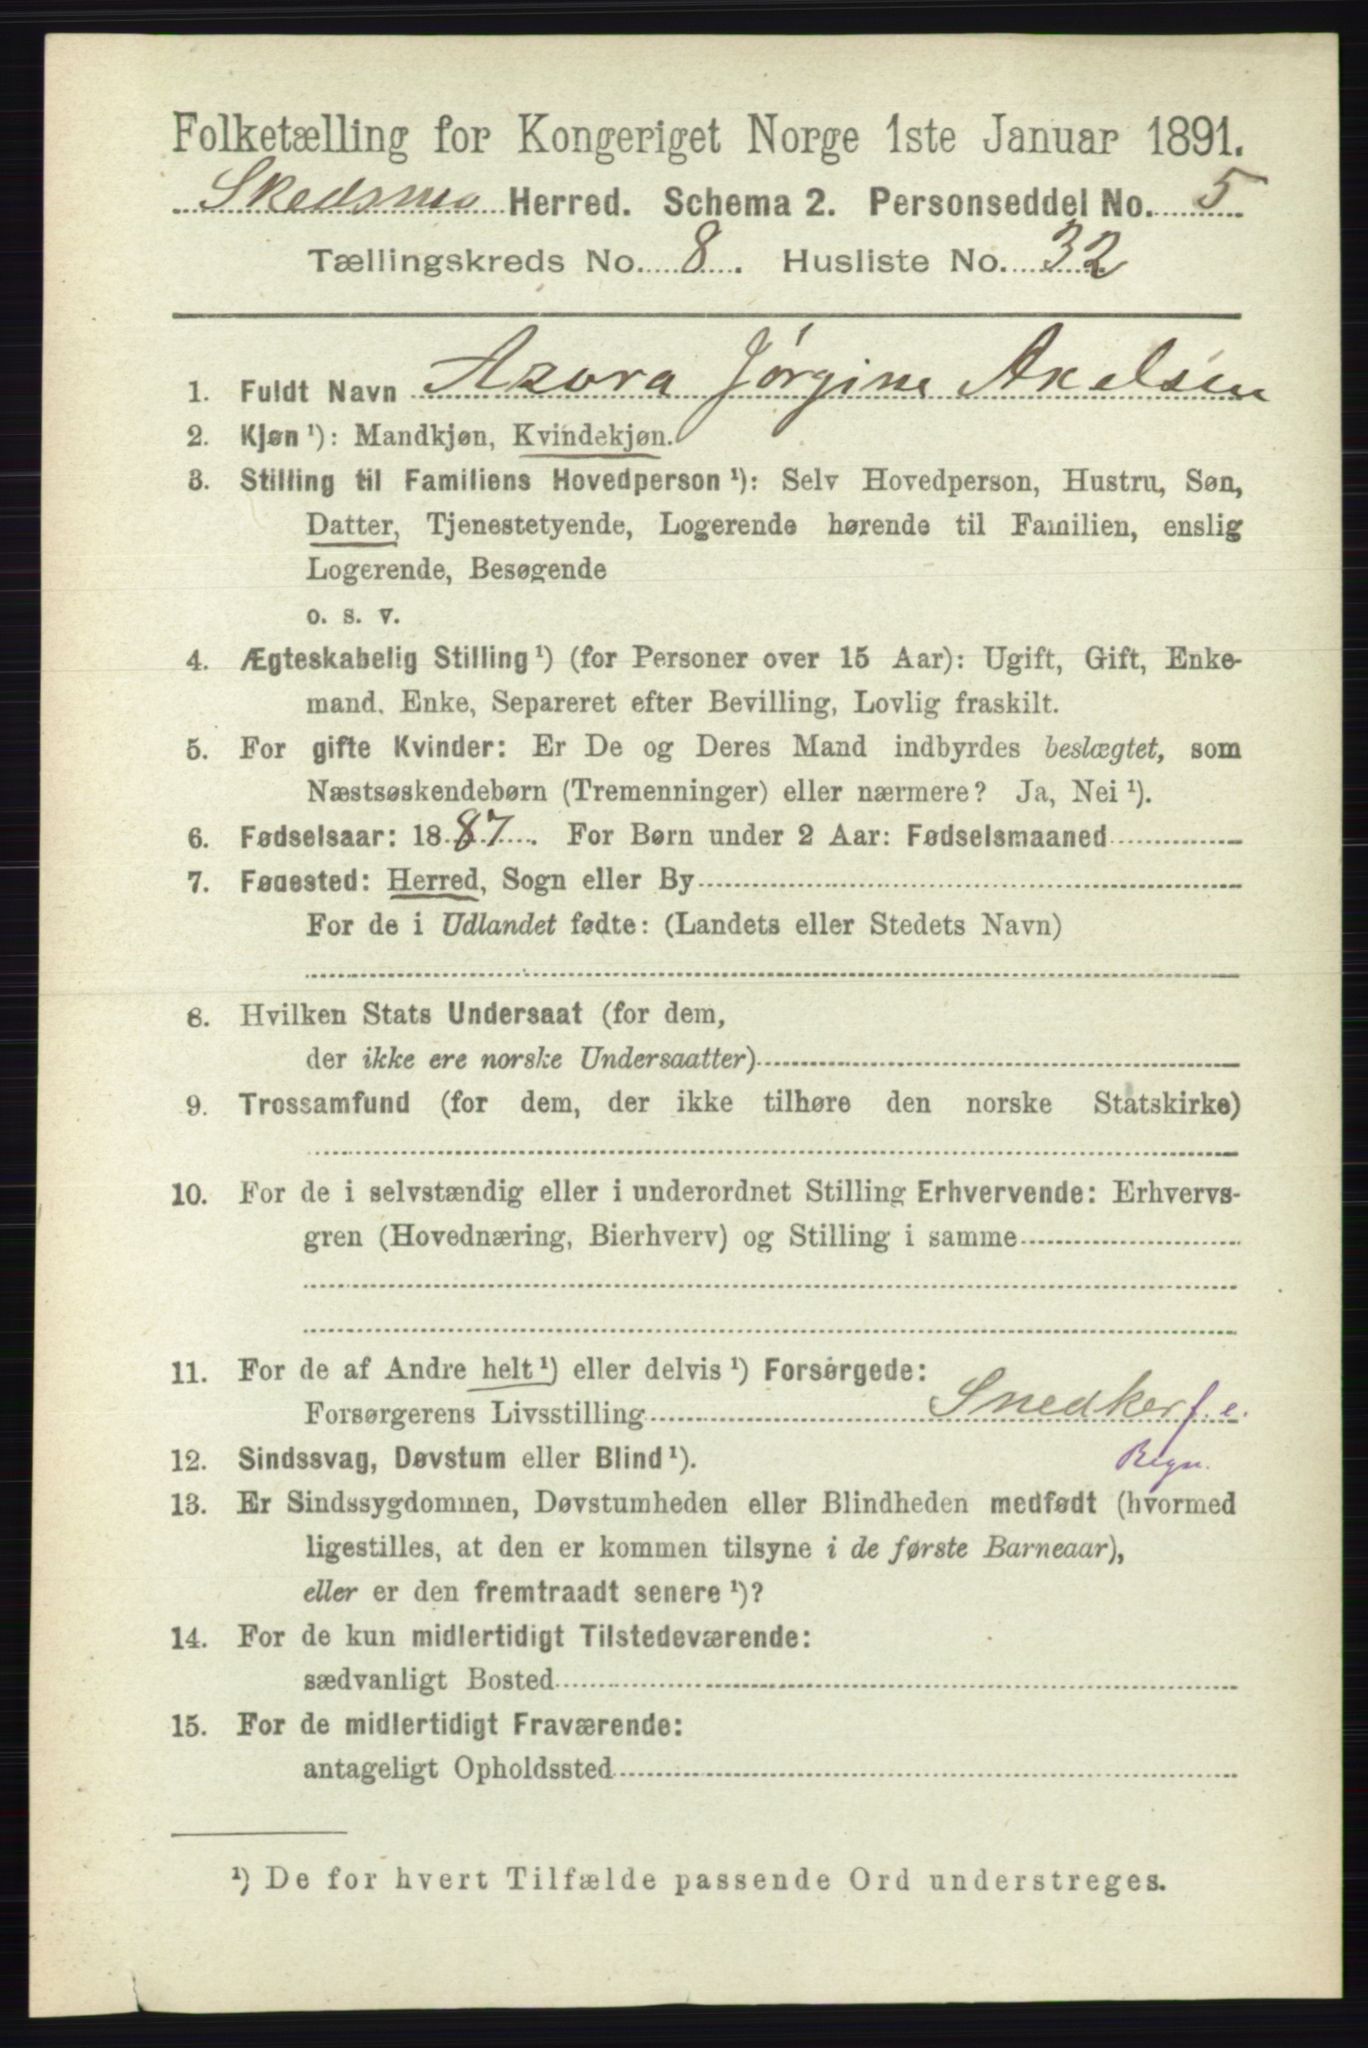 Folketælling for Kongeriget Norge 1ste Januar 1891.
Skedsmo Herred. Schema 2. Personseddel No. 5
Tællingskreds No. 8. Husliste No. 32
1. Fuldt Navn Azora Jørgine Axelsen
2. Kjøn ¹): Mandkjøn, Kvindekjøn.
3. Stilling til Familiens Hovedperson ¹): Selv Hovedperson, Hustru, Søn,
Datter, Tjenestetyende, Logerende hørende til Familien, enslig
Logerende, Besøgende
o. s. v.
4. Ægteskabelig Stilling ¹) (for Personer over 15 Aar): Ugift, Gift, Enke-
mand, Enke, Separeret efter Bevilling, Lovlig fraskilt.
5. For gifte Kvinder: Er De og Deres Mand indbyrdes beslægtet, som
Næstsøskendebørn (Tremenninger) eller nærmere? Ja, Nei ¹).
6. Fødselsaar: 1887. For Børn under 2 Aar: Fødselsmaaned
7. Fødested: Herred, Sogn eller By
For de i Udlandet fødte: (Landets eller Stedets Navn)
8. Hvilken Stats Undersaat (for dem,
der ikke ere norske Undersaatter)
9. Trossamfund (for dem, der ikke tilhøre den norske Statskirke)
10. For de i selvstændig eller i underordnet Stilling Erhvervende: Erhvervs-
gren (Hovednæring, Bierhverv) og Stilling i samme
11. For de af Andre helt ¹) eller delvis ¹) Forsørgede:
Forsørgerens Livsstilling Snedker f. e.
Regn.
12. Sindssvag, Døvstum eller Blind ¹).
13. Er Sindssygdommen, Døvstumheden eller Blindheden medfødt (hvormed
ligestilles, at den er kommen tilsyne i de første Barneaar),
eller er den fremtraadt senere ¹)?
14. For de kun midlertidigt Tilstedeværende:
sædvanligt Bosted
15. For de midlertidigt Fraværende:
antageligt Opholdssted
¹) De for hvert Tilfælde passende Ord understreges.